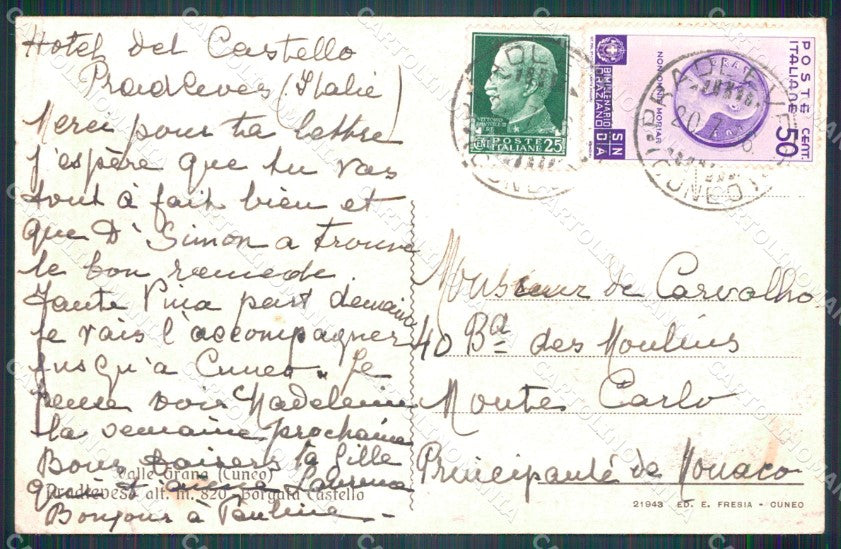 Hotel del Castello
Pradleves (Italie)
Merci pour ta lettre
j'espère que tu vas
tout à fait bien et
que Dr Simon a trouvé
le bon remede.
Tante Pina part demain
je vais l'accompagner
jusqu'a Cuneo. Je
pense voir Madeleine
la semaine prochaine
Bons baisers ta fille
qui t'aime
Bonjour à Pauline
Valle Grana (Cuneo)
Pradleves alt. m. 820 Borgata Castello
POSTE ITALIANE 25
POSTE ITALIANE CENT. 50
BIMILLENARIO ORAZIANO
NON OMNIS MORIAR
PRADLEVES
(CUNEO)
Monsieur de Carvalho
40 Bd des Moulins
Monte Carlo
Principauté de Monaco
21943 ED. E. FRESIA - CUNEO
CARTOLINOMANIA